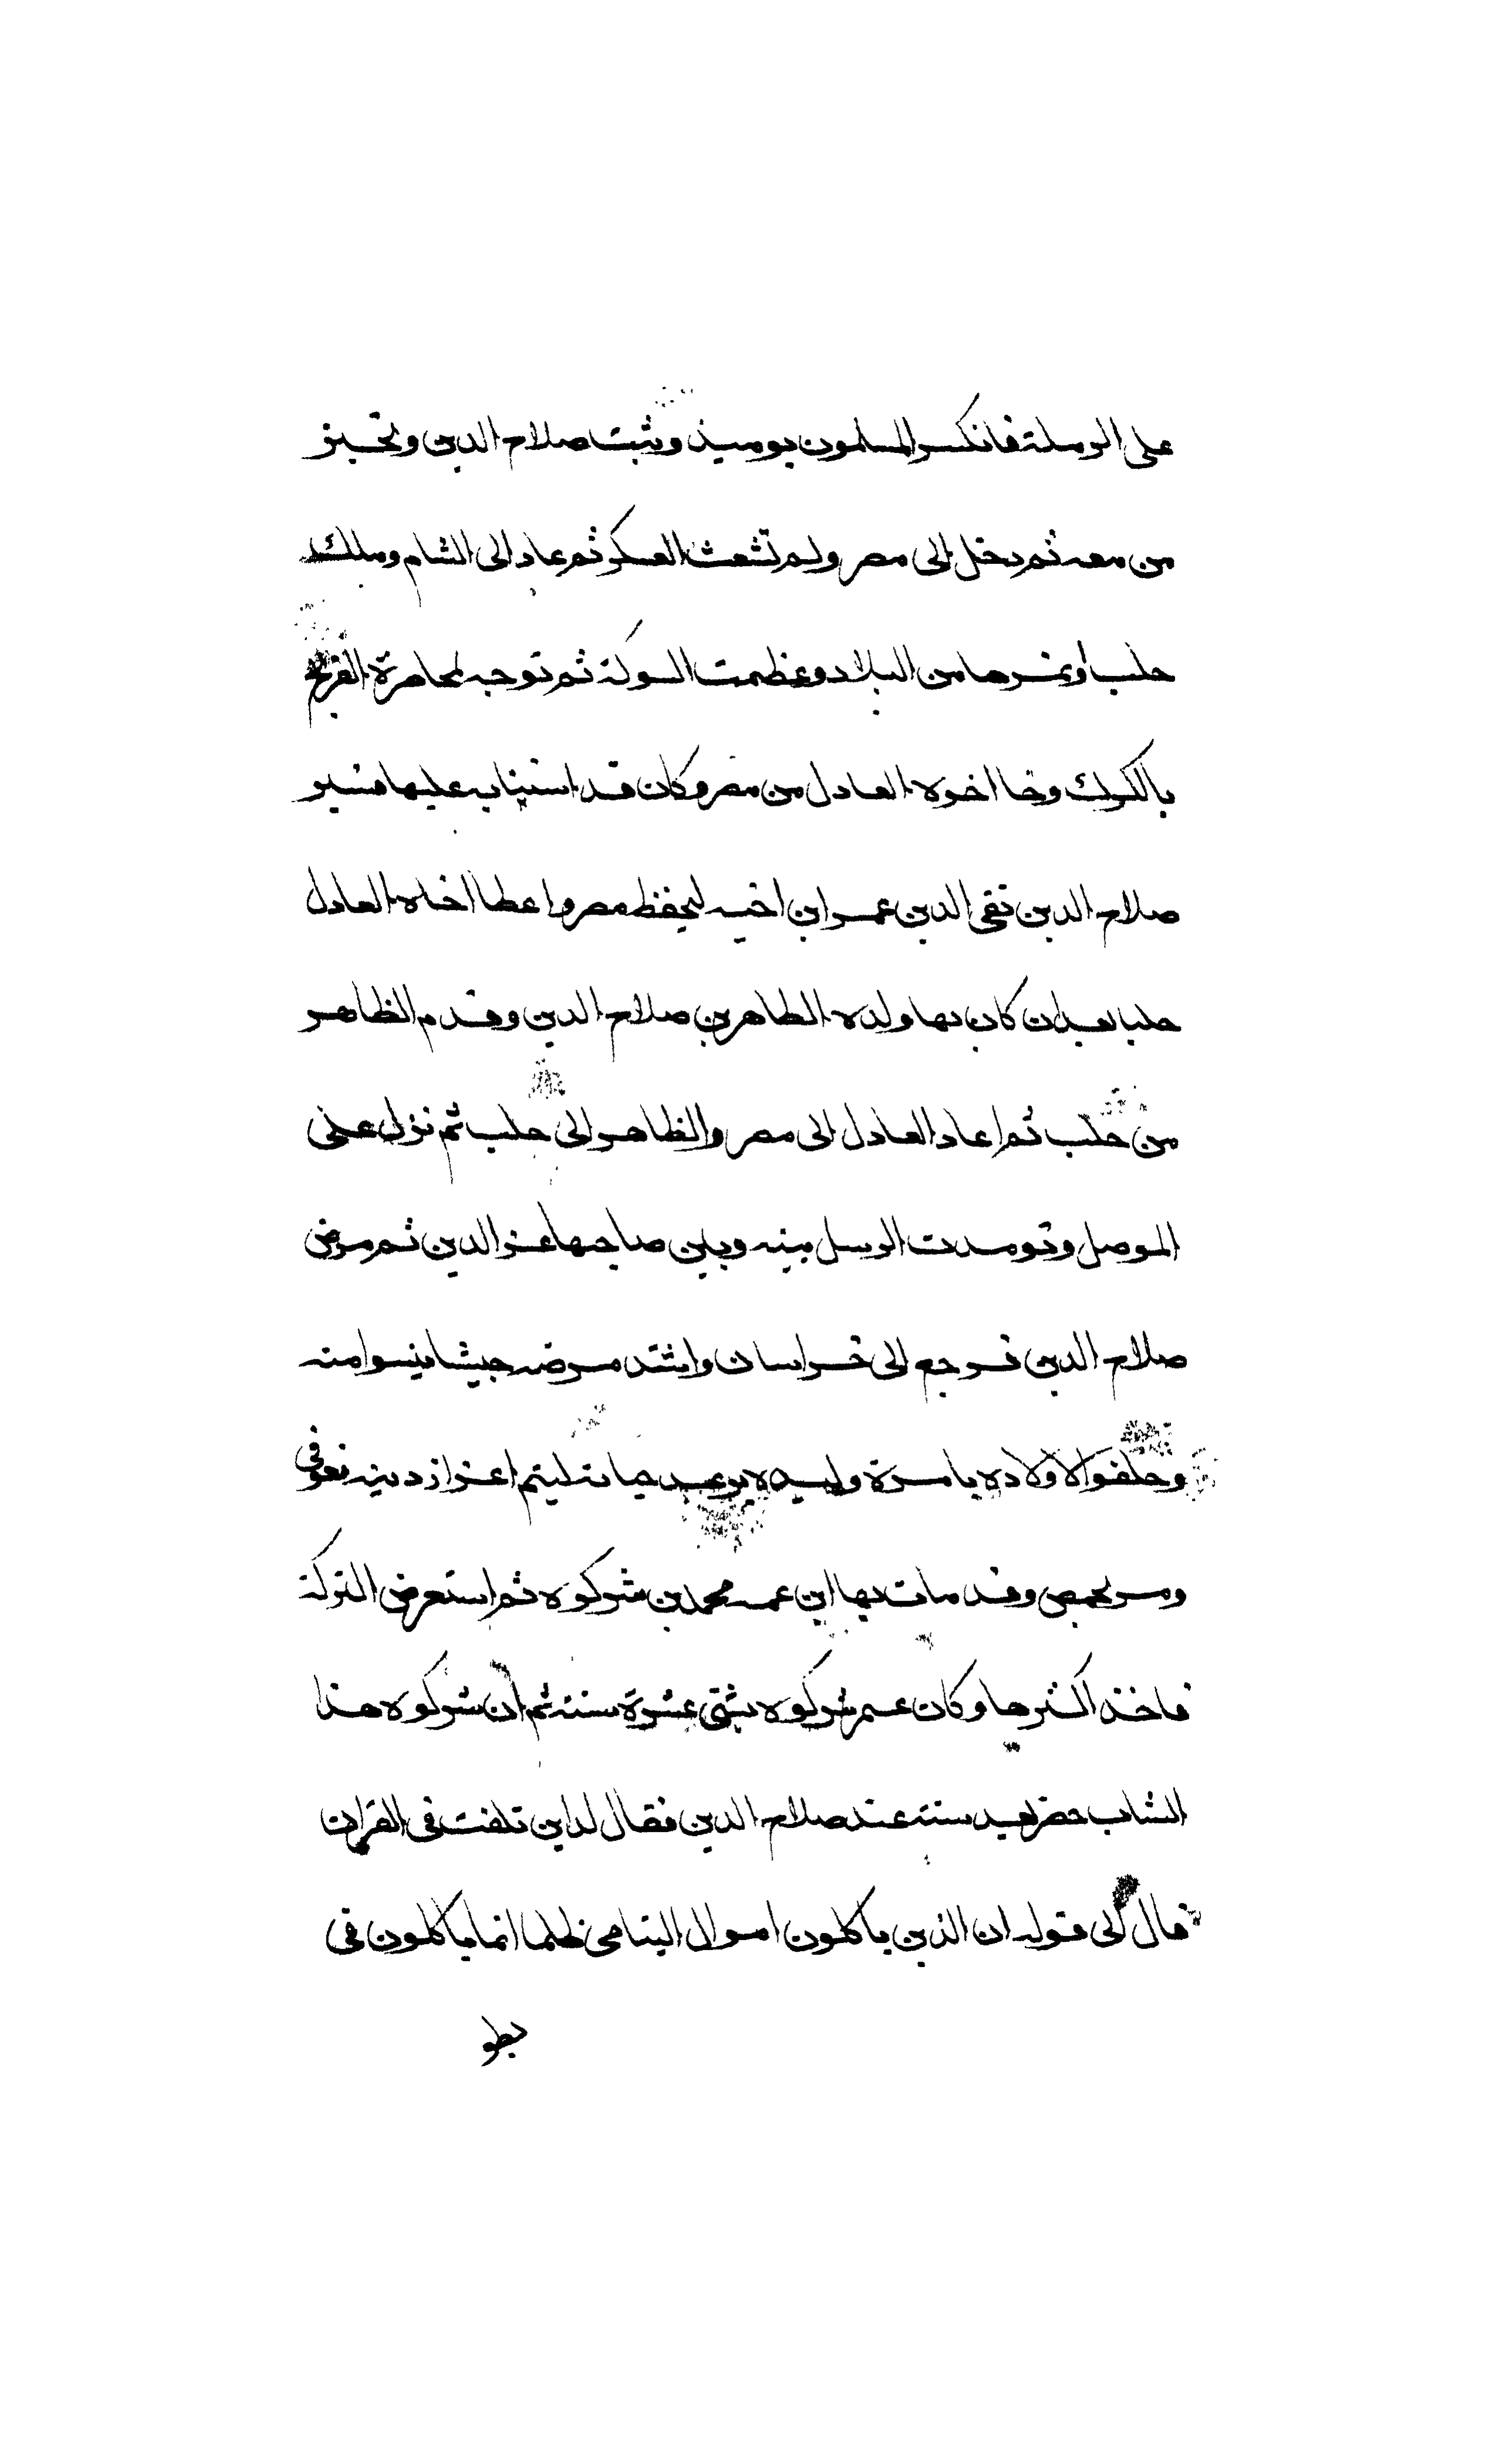 على الرملة فانكسر المسلمون يوميذ وثبت صلاح الدين وتحيز
من معه ثم دخل الى مصر ولم تشعث العسكر ثم عاد الى الشام وملك
حلب او غيرها من البلاد وعظمت السوكة ثم توجه لمحاصرة الفرنج
بالكرك وجا اخوه العادل من مصر وكان قد استناب عليها فسير
صلاح الدين تقى الدين عمر ابن اخيه ليحفظ مصر واعطا اخاه العادل
حلبا بعد ان كان بها ولده الظاهر بن صلاح الدين وقدم الظاهر
من حلب ثم اعاد العادل الى مصر والظاهر الى حلب ثم نزل على
الموصل وتومدت الرسل بينه وبين صاحبها عز الدين ثم مرض
صلاح الدين فرجع الى خراسان واشتد مرضه حيشا ييسوا منه
وحلفوا لاولاده يامرة حياته ليتم اعزاز دينه فعوفى
ومر بحمص وقد مات بها ابن عمه محمد بن شركوه ثم استعرض التركة
فاخذ اكثرها وكان عمر شركوه ثنتى عشرة سنة ثم ان شركوه هذا
الشاب حضر بعد سنة عند صلاح الدين فقال له اين تلفت فى القران
قال الى قوله ان الذين ياكلون اموال اليتامى ظلما انما ياكلون فى
بطو